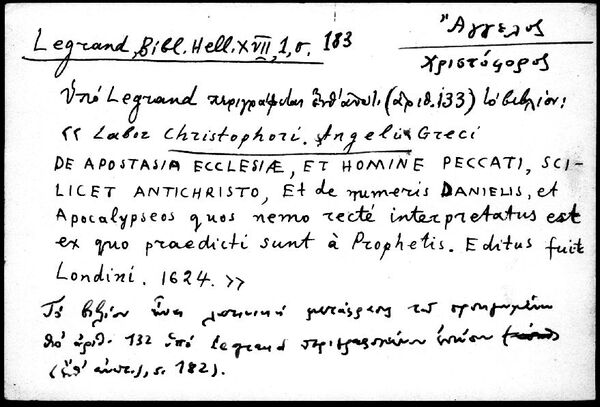 Legrand, Bibl. Hell. XVII, 1, σ. 183
Ἄγγελος
Χριστόφορος
Ὑπό Legrand περιγράφεται (ἀριθ. 133) τό βιβλίον:
« Labor Christophori Angeli Greci
DE APOSTASIA ECCLESIÆ, ET HOMINE PECCATI, SCI-
LICET ANTICHRISTO, Et de numeris DANIELIS, et
Apocalypseos quos nemo rectè interpretatus est
ex quo praedicti sunt à Prophetis. Editus fuit
Londini. 1624. »
Τό βιβλίον εἶναι λατινική μετάφρασις τοῦ προηγουμένου
ἀριθ. 132 ὑπό Legrand
σ. 182).